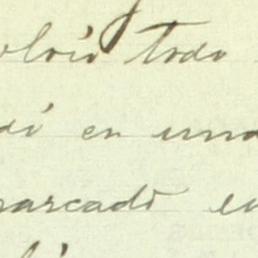 olvió todo
di en una
marcado en